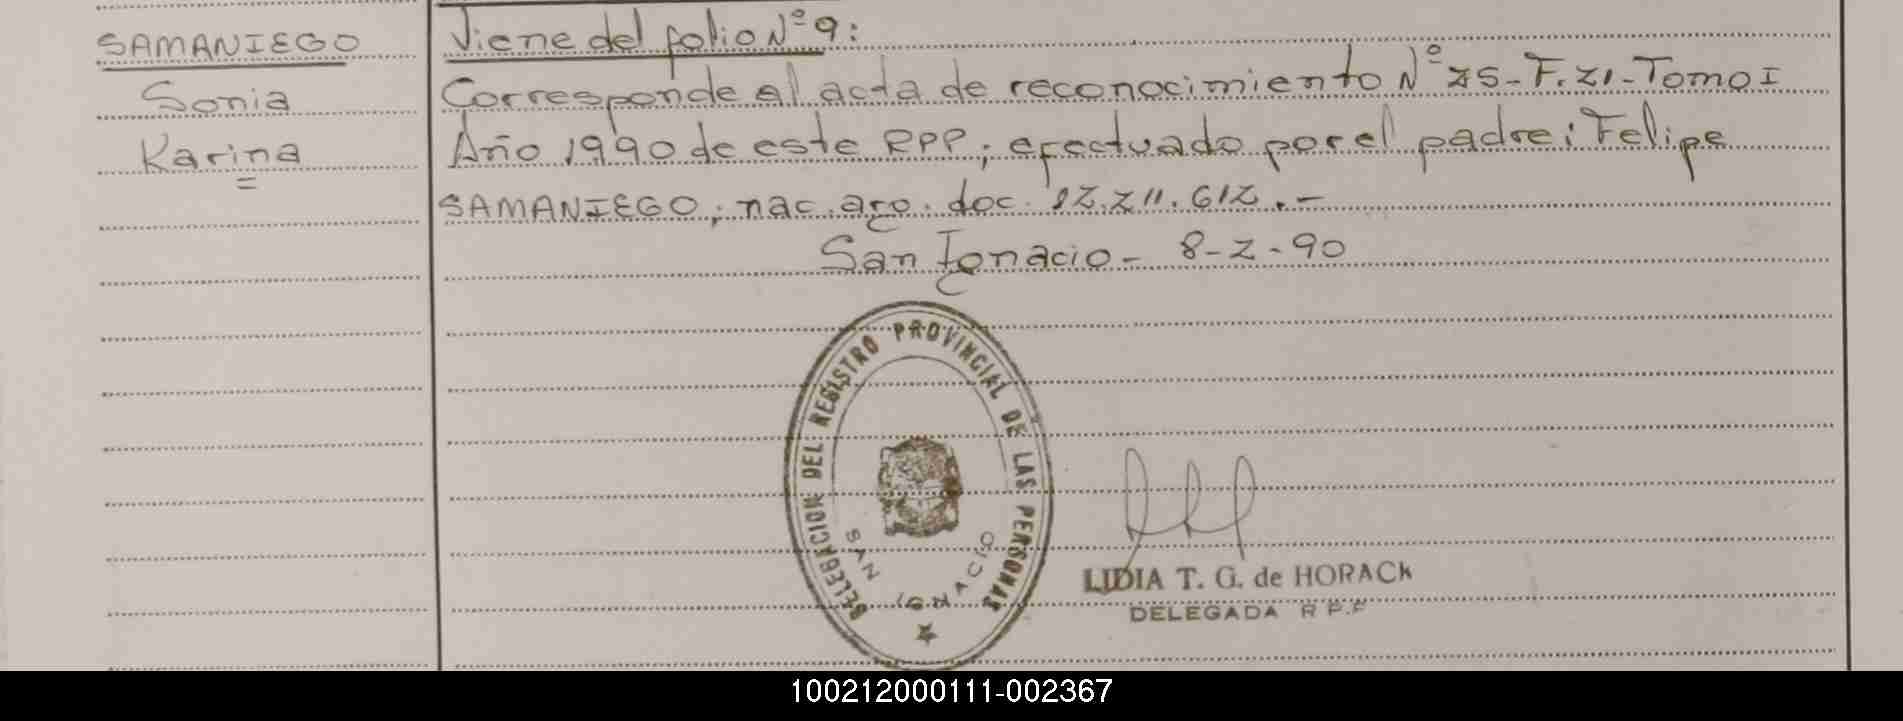 SAMANIEGO
Sonia
Karina
Viene del folio Nº 9:
Corresponde al acta de reconocimiento Nº 25- F. 21- Tomo I
Año 1990 de este RPP; efectuado por el padre: Felipe
SAMANIEGO; nac. arg. doc. 12.211.612.-
San Ignacio - 8-2-90
DELEGACION DEL REGISTRO PROVINCIAL DE LAS PERSONAS
SAN IGNACIO
LIDIA T. G. de HORACK
DELEGADA R P P
100212000111-002367